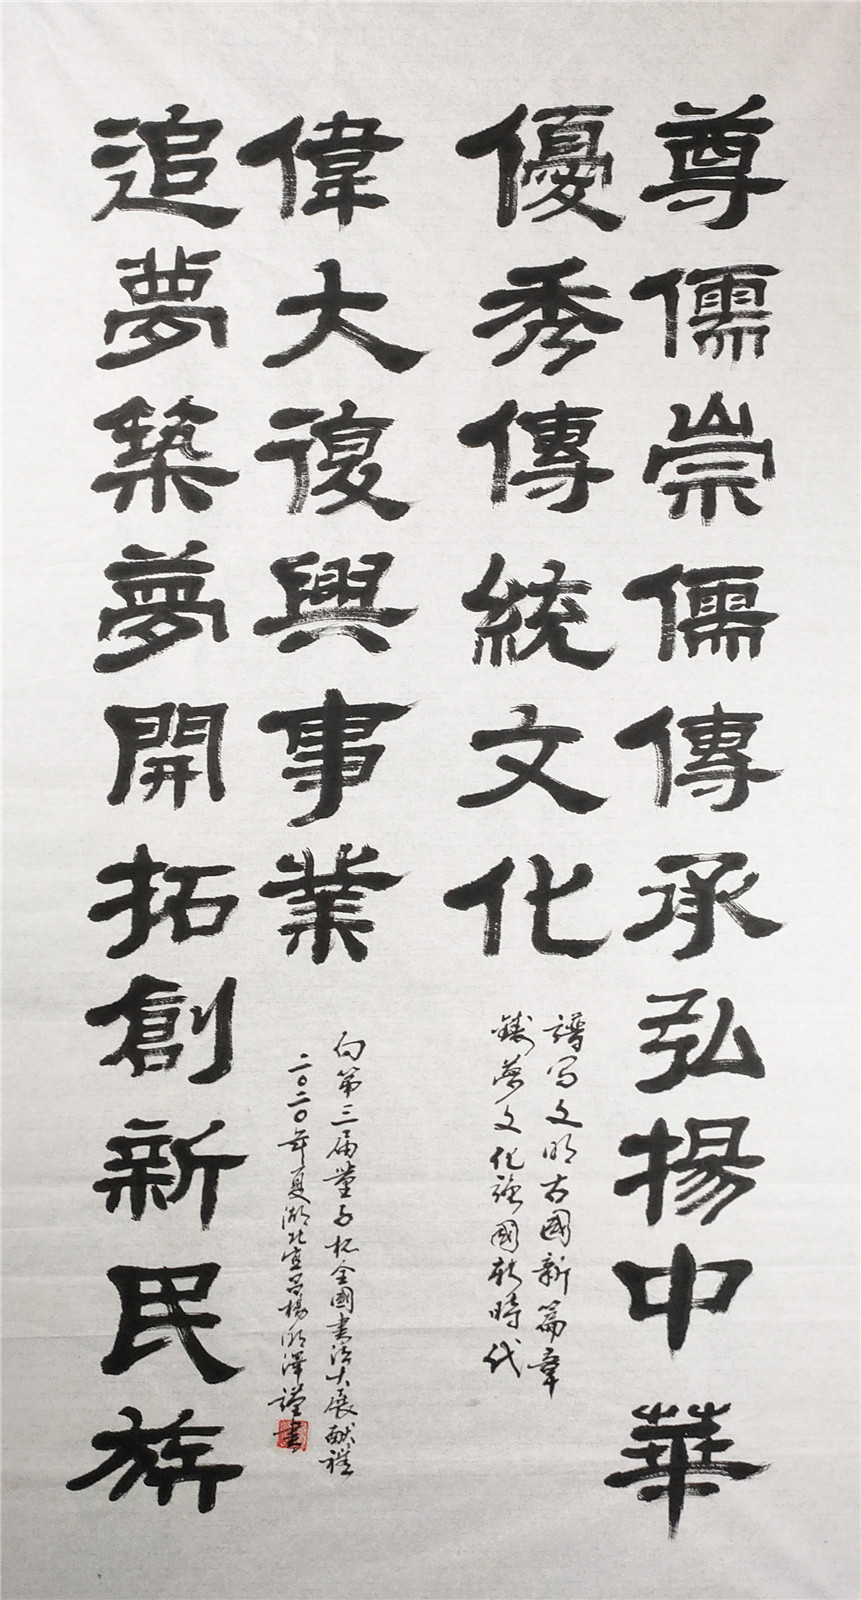 尊儒崇儒傳承弘揚中華
優秀傳統文化
譜写文明古國新篇章
鑄夢文化強國新時代
偉大復興事業
向第三届董子杯全國書法大展献禮
二〇二〇年夏湖北宜昌楊明澤謹書
追夢築夢開拓創新民族